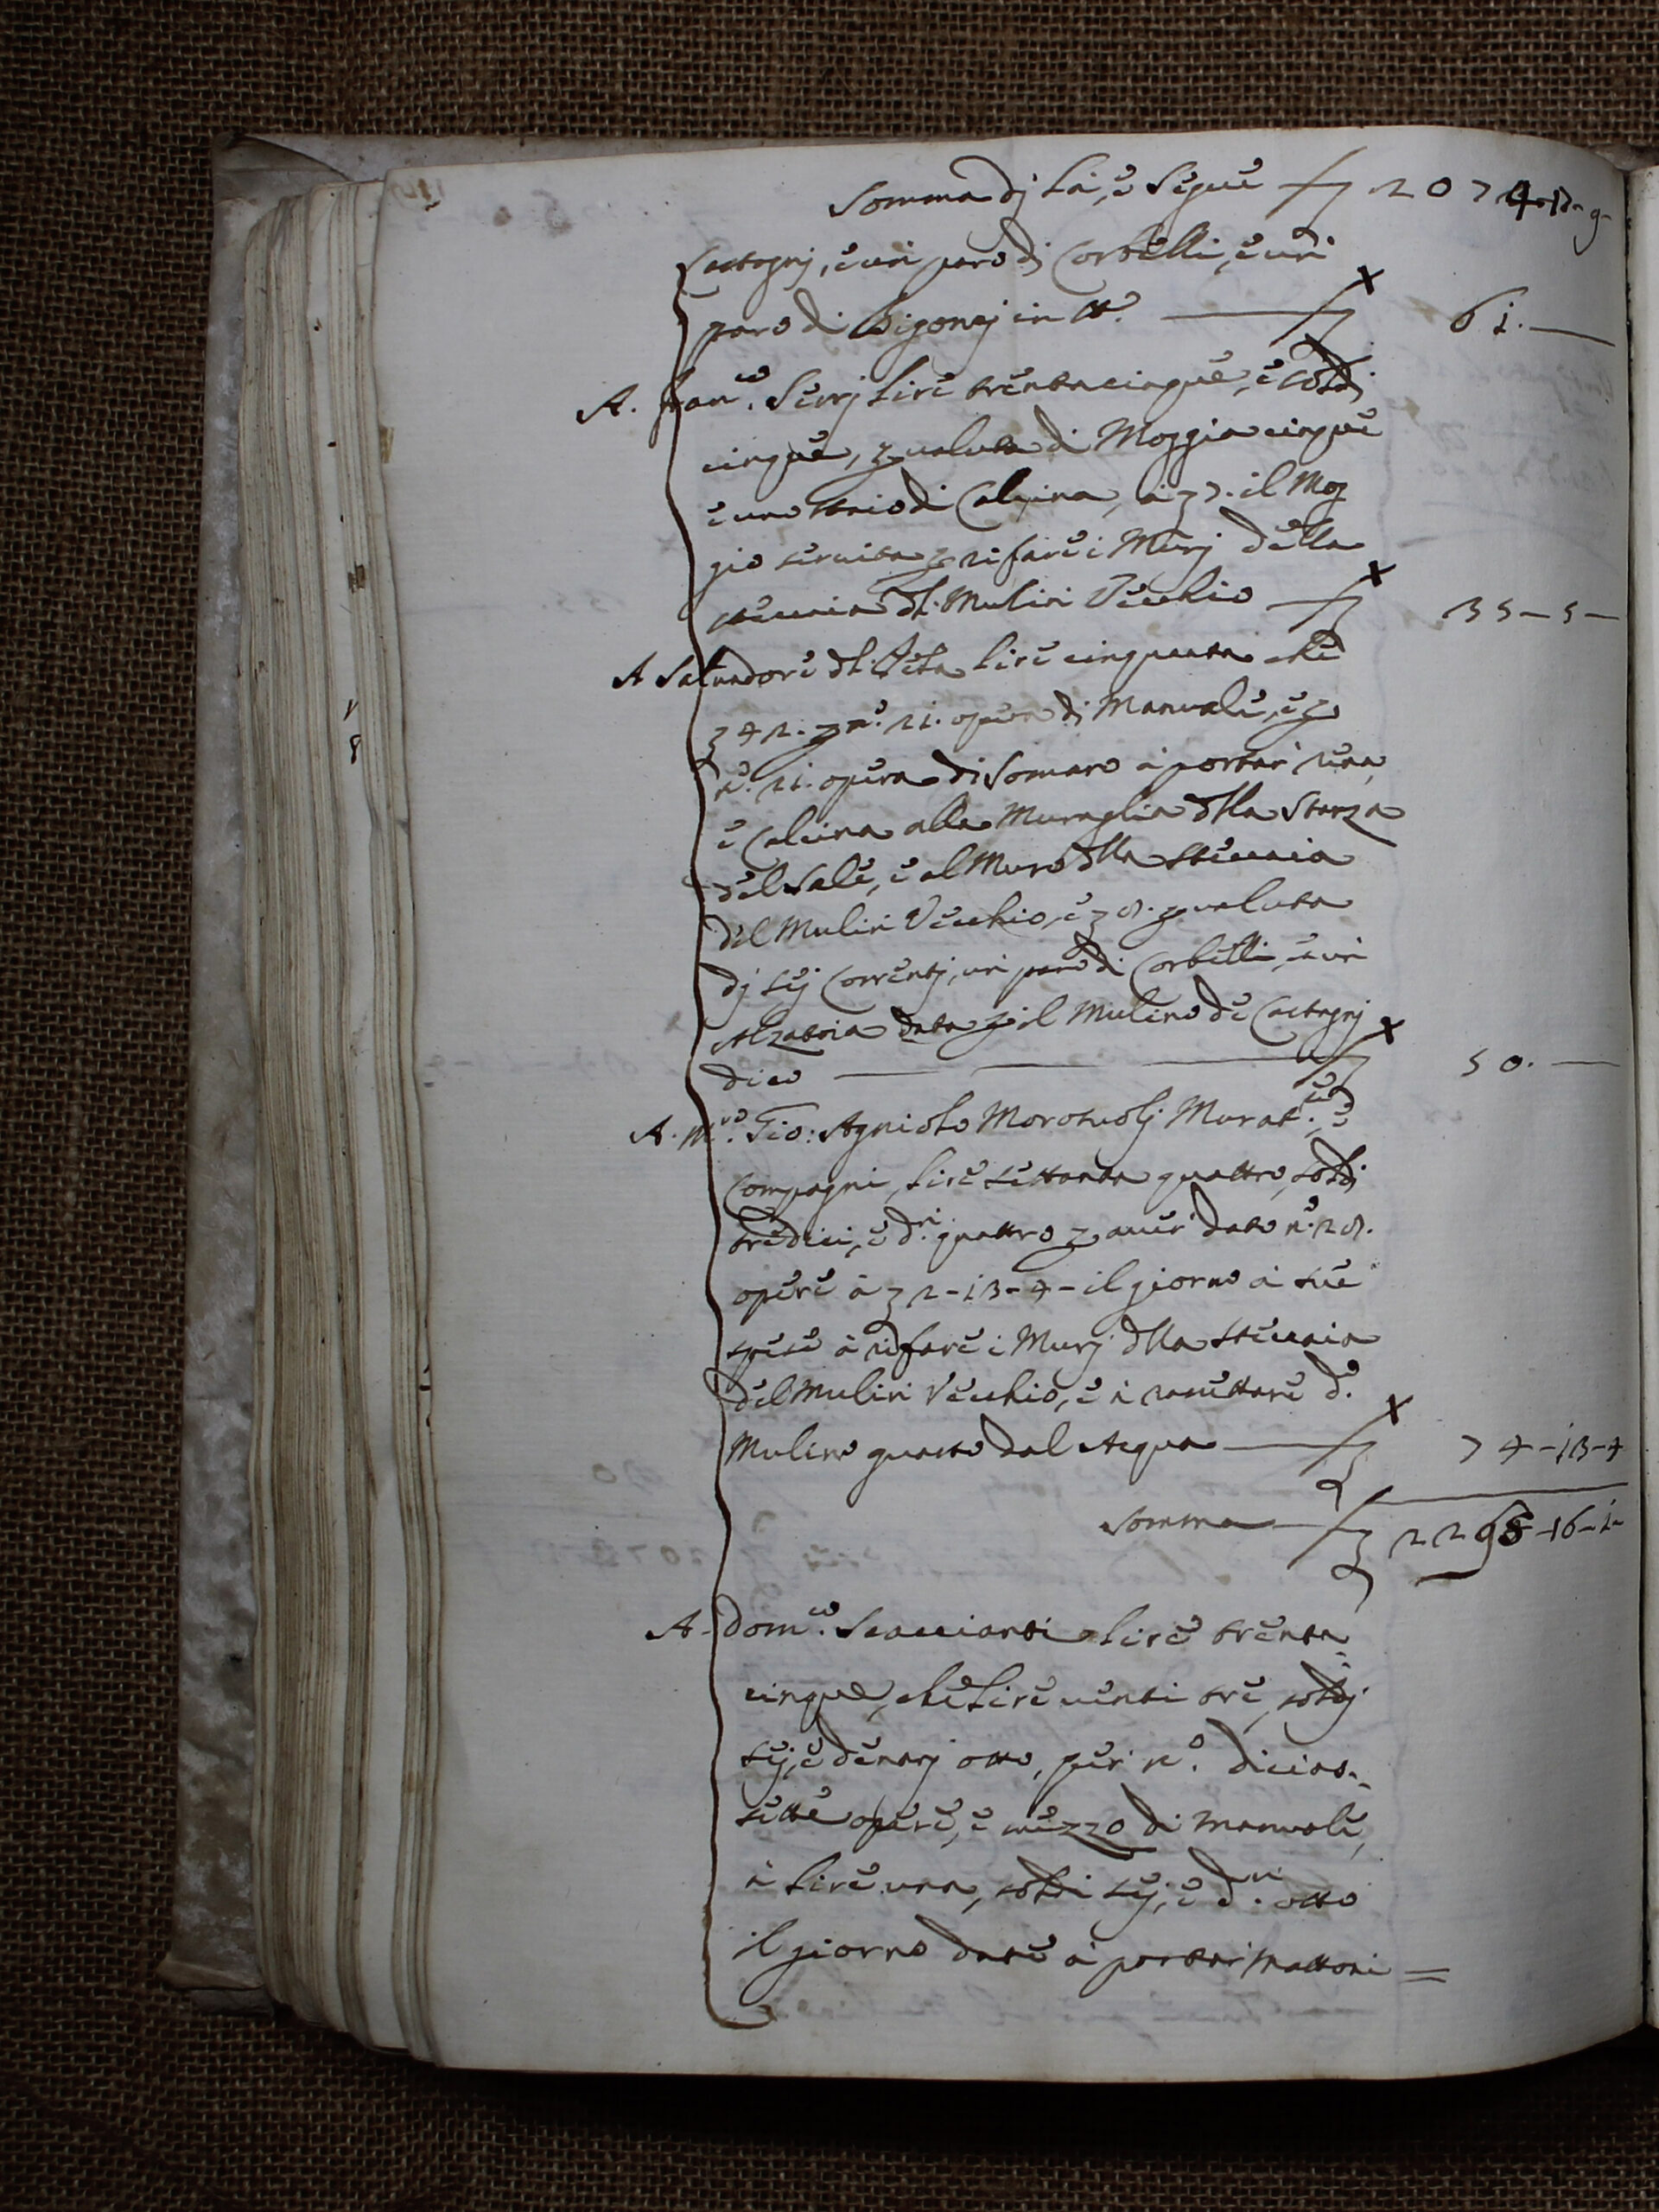 Somma dj là, e segue £ 2074-17-9-
Castagnj, e un paro di Corbelli, e un
paro di Bigonzj in tt.º £ 61.—
A. Fran.co Serrj lire trentacinque, e soldi
cinque, p valuta di Moggia cinque
e uno staio di Calcina, à £ 7. il Mog
gio seruita p rifare i Murj della
steccaia dl. Mulin Vecchio £ 35-5-
A Saluadore dl. lire cinquanta che
£ 42. p n.º 21. opera dj Manuale, e p
n.º 21. opera di Somaro à portar rena,
e Calcina alla Muraglia dlla Storza
del Sale, e al Muro dlla steccaia
del Mulin Vecchio, e £ 8. p valuta
dj sej Correntj, un paro di Corbelli, e un
Alzatoia data p il Mulino de Castagnj
dico £ 50.—
A. M.ro Gio: Agniolo Morotuolj Murat.re, e
Compagni, lire settanta quattro, soldi
tredici, e d.ri quattro p auer dato n.º 28.
opere à £ 2-13-4- il giorno à sue
spese à rifare i Murj dlla steccaia
del Mulin Vecchio, e à rasettare d.º
Mulino guasto dal Acqua £ 74-13-4
Somma £ 2295-16-1-
A. Dom.co Scaccianti lire trenta
cinque, che lire uenti tre, soldj
sej, e denarj otto, per n.º dicias-
sette opere, e mezzo di manuale,
à lire una, soldi sej, e d.ri otto
il giorno date à portar Mattoni =